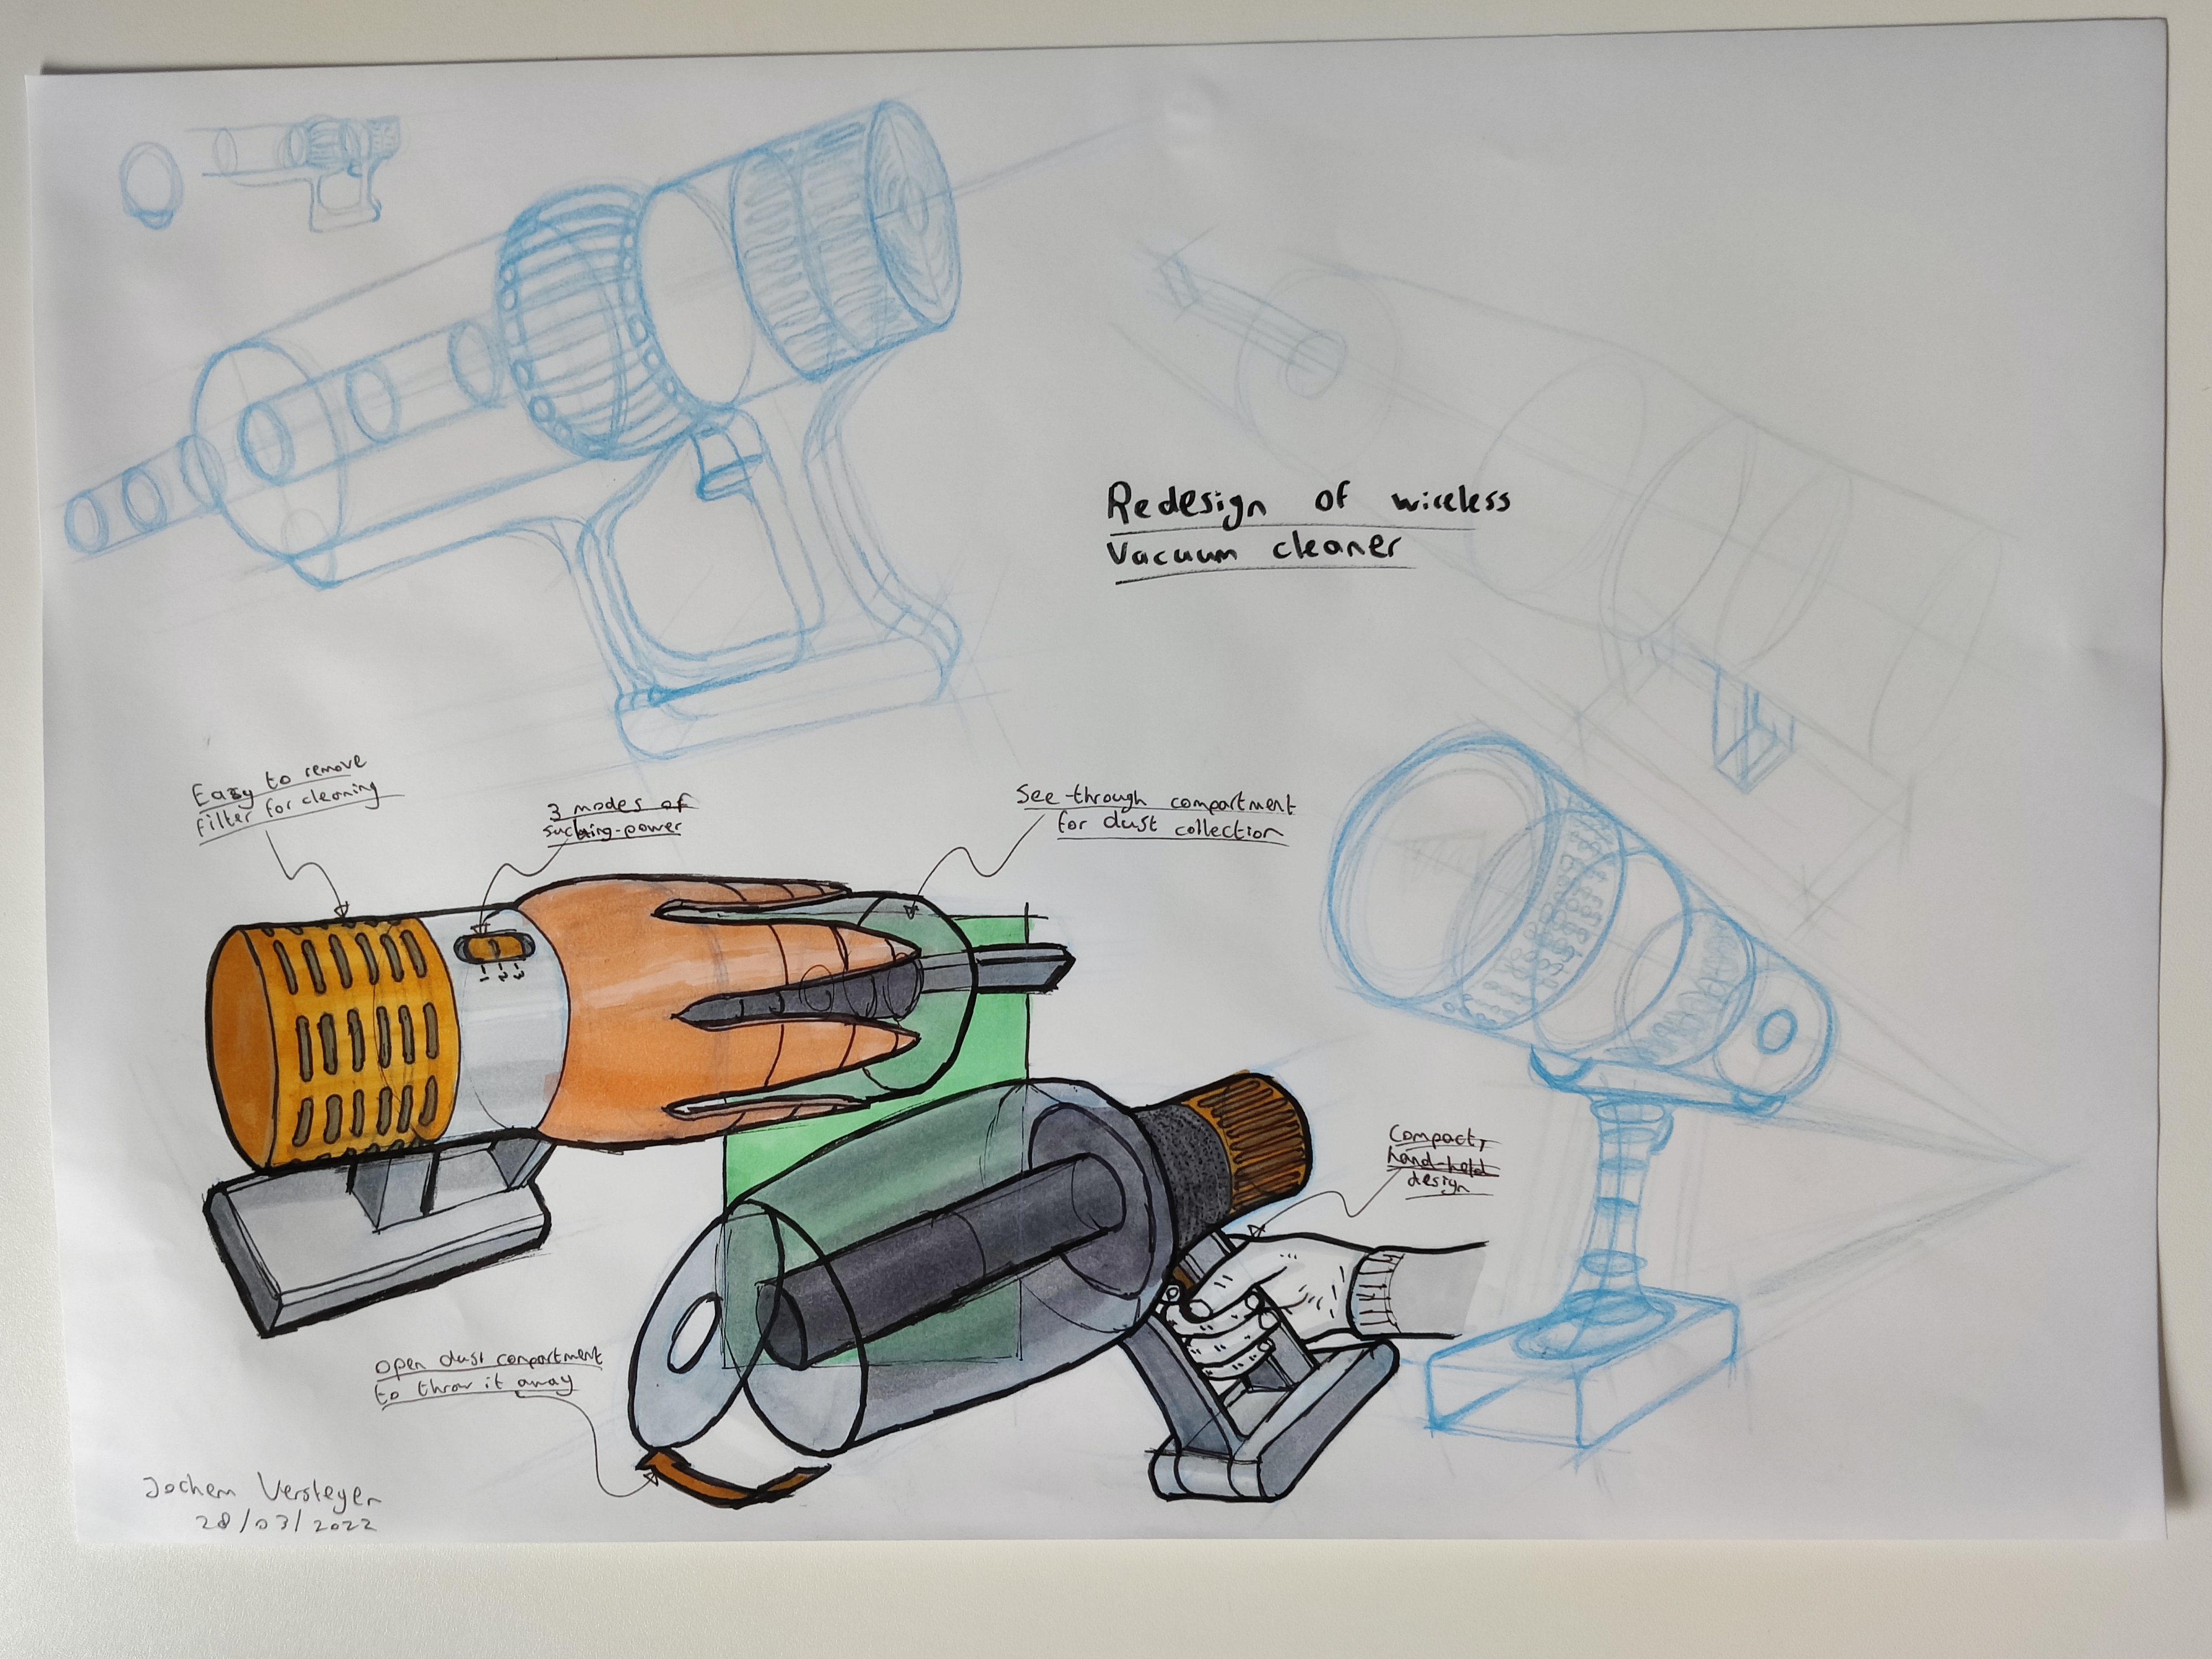 Redesign of wireless
Vacuum cleaner
Easy to remove
filter for cleaning
3 modes of
sucking-power
See-through compartment
for dust collection
1 2 3
Compact,
hand-held
design
open dust compartment
to throw it away
Jochem Versteyen
28/03/2022